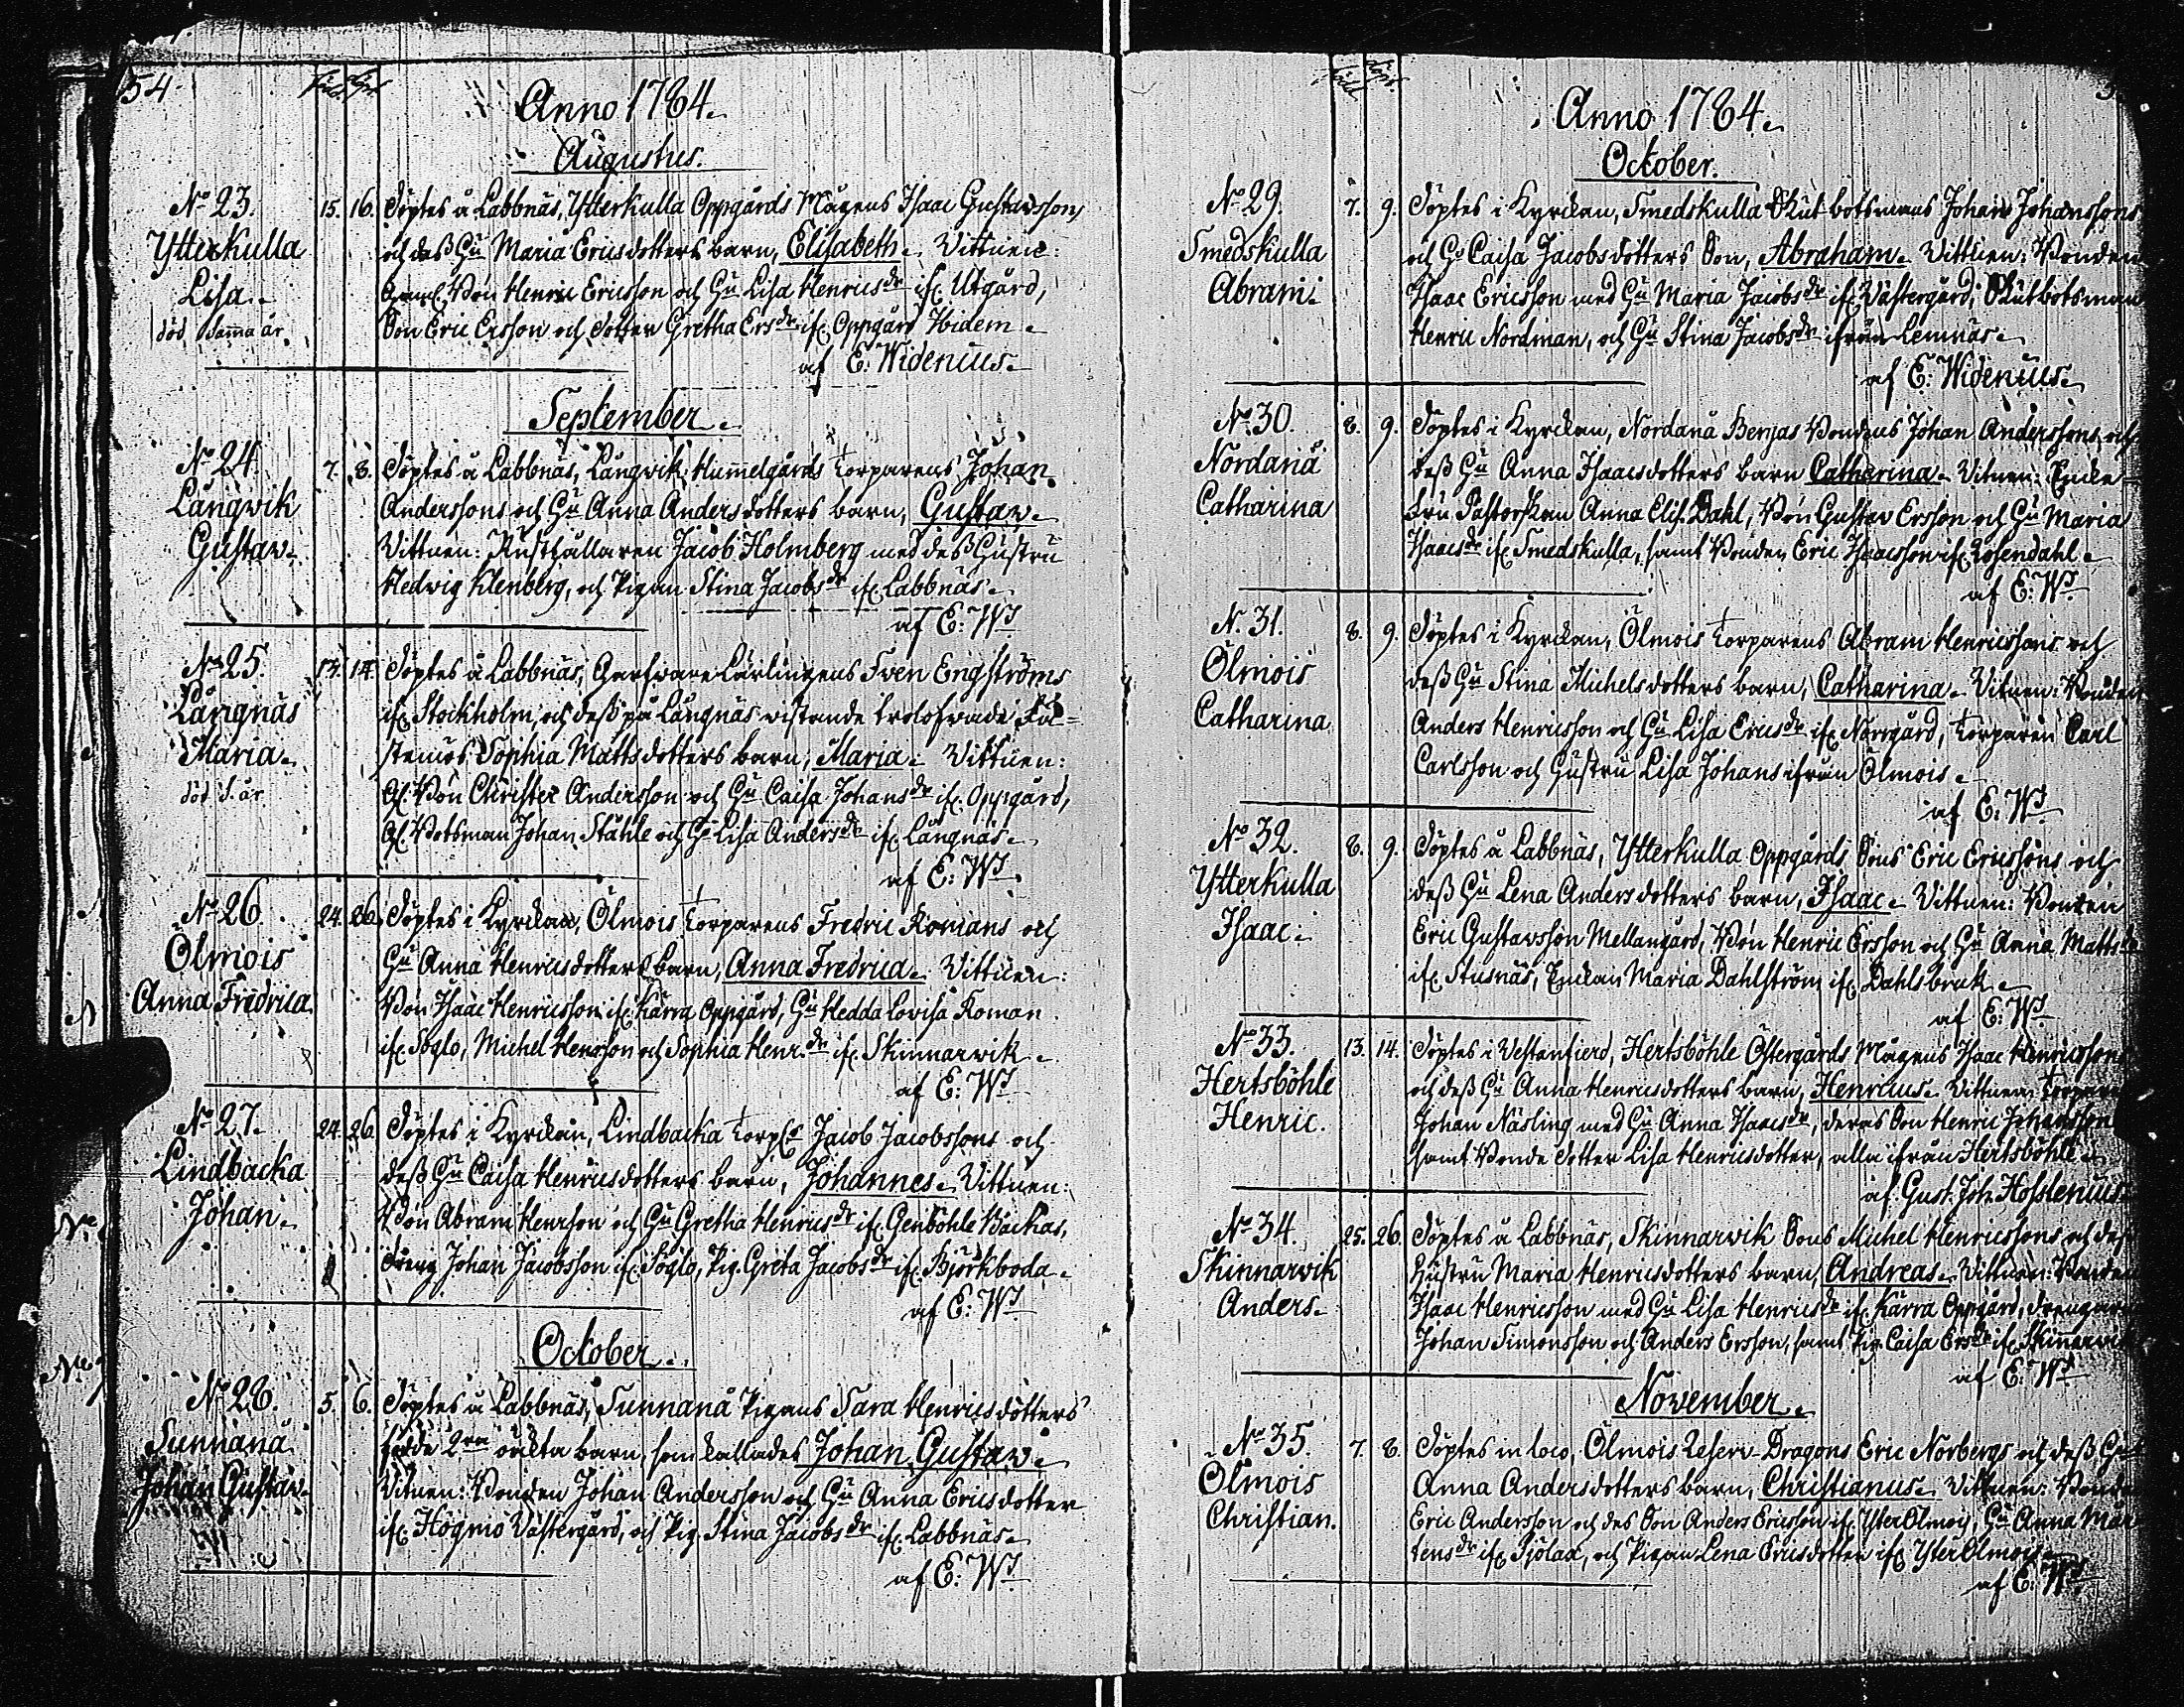 54.
Anno 1784.
Augustus.
No 23.
Ytterkulla
Lisa.
död samma år.
15. 16. Döptes å Labbnäs, Ytterkulla Oppgårds Mågens Isaac Gustavssons
och dess Hu Maria Ericsdotters barn, Elisabeth. Vittnen:
Gaml. Bon Henric Ericsson och Hu Lisa Henricsdr if. Utgård,
Son Eric Ersson och dotter Gretha Ersdr if. Oppgård Ibidem.
af E. Widenius.
September.
No 24.
Långwik
Gustav.
7. 8. Döptes å Labbnäs, Långwik Hummelgårds torparens Johan
Anderssons och Hu Anna Andersdotters barn, Gustav.
Vittnen: Rusthållaren Jacob Holmberg med dess Hustru
Hedwig Klenberg, och Pigan Stina Jacobsdr if. Labbnäs.
af E: Ws
No 25.
Långnäs
Maria.
död s. år
13. 14. Döptes å Labbnäs, Garfware Lärlingens Sven Engströms
if. Stockholm, och dess på Långnäs vistande trolofwade Fä-
stemös Sophia Mattsdotters barn, Maria. Vittnen:
Gl. Bon Christer Andersson och Hu Caisa Johansdr if. Oppgård,
Gl. Botsman Johan Ståhle och Hu Lisa Andersdr if. Långnäs.
af E: Ws
No 26.
Ölmois
Anna Fredrica
24. 26. Döptes i Kyrckan, Ölmois torparens Fredric Romans och
Hu Anna Henricsdotters barn, Anna Fredrica. Vittnen:
Bon Isaac Henricsson if. Kärra Oppgård, Hu Hedda Lovisa Roman
if. Söglo, Michel Henrsson och Sophia Henr.dr if. Skinnarwik.
af E: Ws
No 27.
Lindbacka
Johan.
24. 26. Döptes i Kyrckan, Lindbacka torp.s Jacob Jacobssons och
dess Hu Caisa Henricsdotters barn, Johannes. Vittnen:
Bon Abram Henrsson och Hu Gretha Henricsdr if. Genböhle Backas,
dreng Johan Jacobsson if. Söglo, Pig. Greta Jacobsdr if. Björkboda.
af E: Ws
October.
No 28.
Sunnanå
Johan Gustav.
5. 6. Döptes å Labbnäs, Sunnanå Pigans Sara Henricsdotters
födde 2ra oäckta barn, som kallades Johan Gustav.
Vitnen: Bonden Johan Andersson och Hu Anna Ericsdotter
if. Högmo Västergård, och Pig. Stina Jacobsdr if. Labbnäs.
af E: Ws
Anno 1784.
October.
No 29.
Smedskulla
Abram.
7. 9. Döptes i Kyrckan, Smedskulla Skutbotsmans Johan Johanssons
och Hu Caisa Jacobsdotters Son, Abraham. Vittnen: Bonden
Isaac Ericsson med Hu Maria Jacobsdr if. Västergård, Skutbotsman
Henric Nordman, och Hu Stina Jacobsdr ifrån Lemnäs.
af E: Widenius.
No 30.
Nordanå
Catharina
8. 9. Döptes i Kyrckan, Nordanå Benjas Bondens Johan Anderssons och
dess Hu Anna Isaacsdotters barn Catharina. Vitnen: Encke
fru Pastorskan Anna Elis. Dahl, Bon Gustav Ersson och Hu Maria
Isaacsdr if. Smedskulla, samt Bonden Eric Isaacsson if. Rosendahl.
af E: Ws
N. 31.
Ölmois
Catharina
8. 9. Döptes i Kyrckan, Ölmois torparens Abram Henricssons och
dess Hu Stina Michelsdotters barn, Catharina. Vitnen: Bonden
Anders Henricsson och Hu Lisa Ericsdr if. Norrgård, torparen Carl
Carlsson och Hustru Lisa Johans ifrån Ölmois.
af E: Ws
No 32.
Ytterkulla
Isaac.
8. 9. Döptes å Labbnäs, Ytterkulla Oppgårds Sons Eric Ericssons och
dess Hu Lena Andersdotters barn, Isaac. Vittnen: Bonden
Eric Gustavsson Mellangård, Bon Henric Ersson och Hu Anna Mattsdr
if. Stusnäs, Enckan Maria Dahlström if. Dahlsbruk.
af E: Ws
No 33.
Hertsböhle
Henric.
13. 14. Döptes i Vestanfierd, Hertsböhle Östergårds Mågens Isaac Henricssons
och dess Hu Anna Henricsdotters barn, Henricus. Vittnen: torparen
Johan Näsling med Hu Anna Isaacsdr, deras Son Henric Johansson
samt Bonde dotter Lisa Henricsdotter, alla ifrån Hertsböhle.
af Gust. Joh. Hosslenius.
No 34.
Skinnarwik
Anders.
25. 26. Döptes å Labbnäs, Skinnarwik Sons Michel Henricssons och dess
Hustru Maria Henricsdotters barn, Andreas. Vittnen: Bonden
Isaac Henricsson med Hu Lisa Henricsdr if. Kärra Oppgård, drengarne
Johan Simonsson och Anders Ersson, samt Pig. Caisa Ersdr if. Skinnarwik
af E: Ws
November.
No 35.
Ölmois
Christian.
7. 8. Döptes in loco, Ölmois Reserv-Dragons Eric Norbergs och dess Hu
Anna Andersdotters barn, Christianus. Vittnen: Bonden
Eric Andersson och des Son Anders Ericsson if. Yter Ölmois, Hu Anna Mår-
tensdr if. Pjölax, och Pigan Lena Ericsdotter if. Yter Ölmois.
af E: Ws